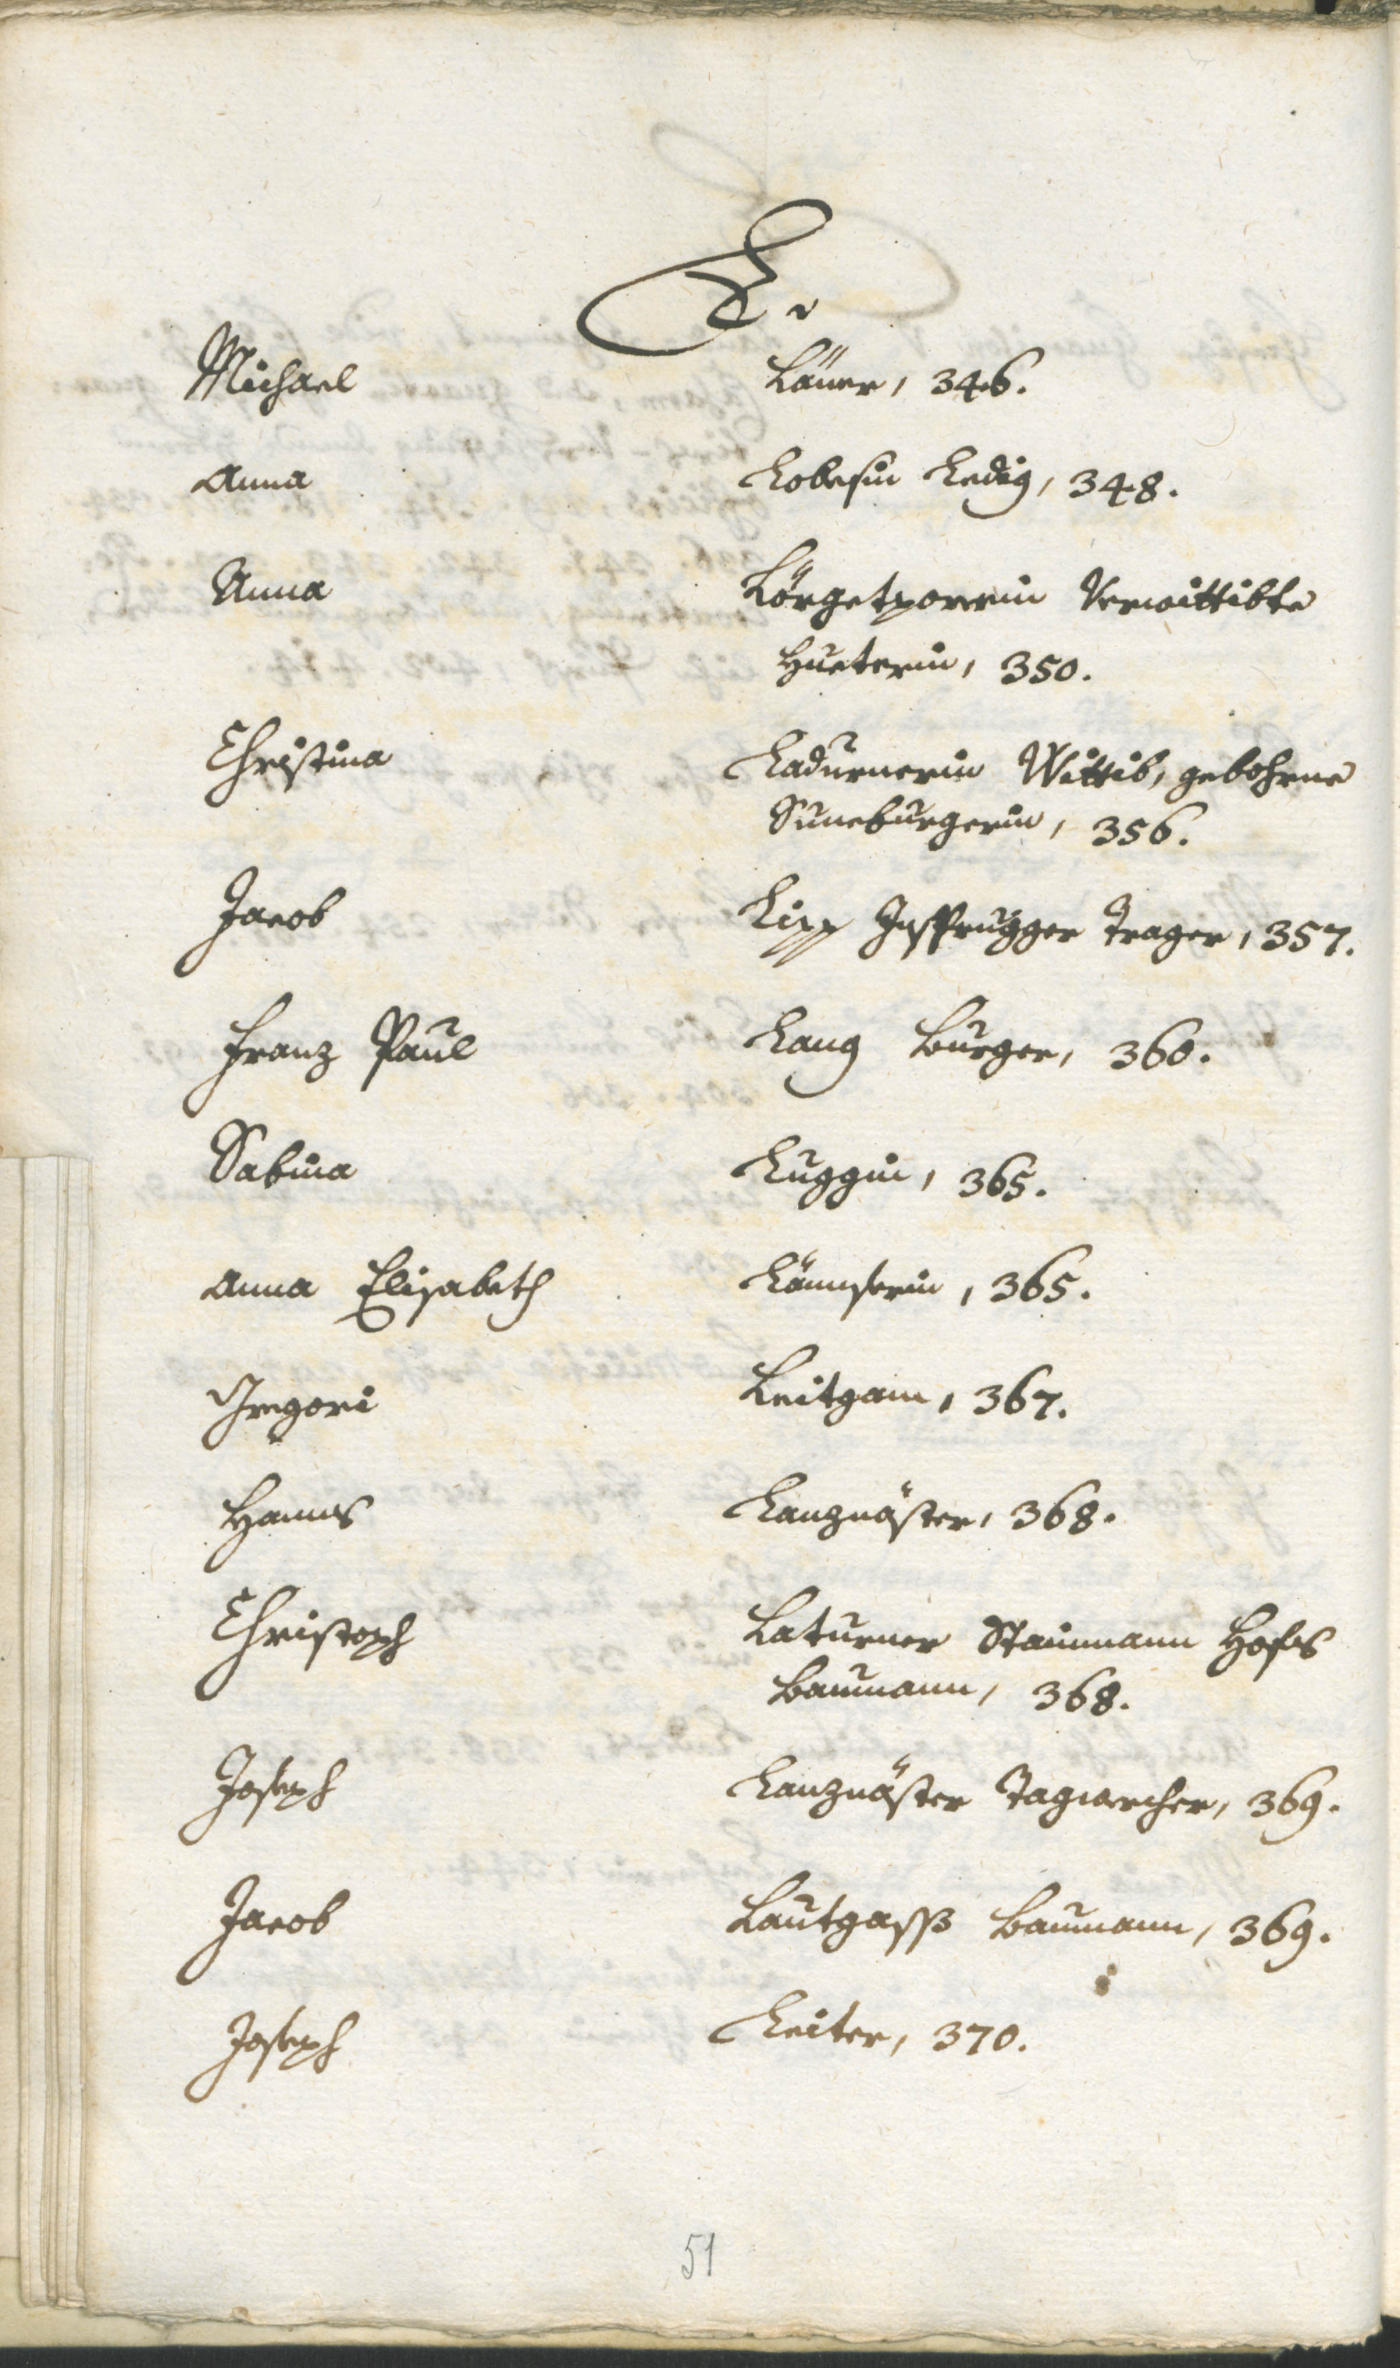 L.
Michael Läner, 346.
Anna Lobesin Ledig, 348.
Anna Lörgetporerin Verwittibte
Hueterin, 350.
Christina Ladurnerin Wittib, gebohrne
Suneburgerin, 356.
Jacob Lipp Insprugger Trager, 357.
Franz Paul Lang Burger, 360.
Sabina Luggin, 365.
Anna Elisabeth Lännserin, 365.
Gregori Leitgam, 367.
Hanns Lanznäster, 368.
Christoph Laturner Stainmann Hofs
Baumann, 368.
Joseph Lanznäster Tagwercher, 369.
Jacob Lautgasß Baumann, 369.
Joseph Leiter, 370.
51